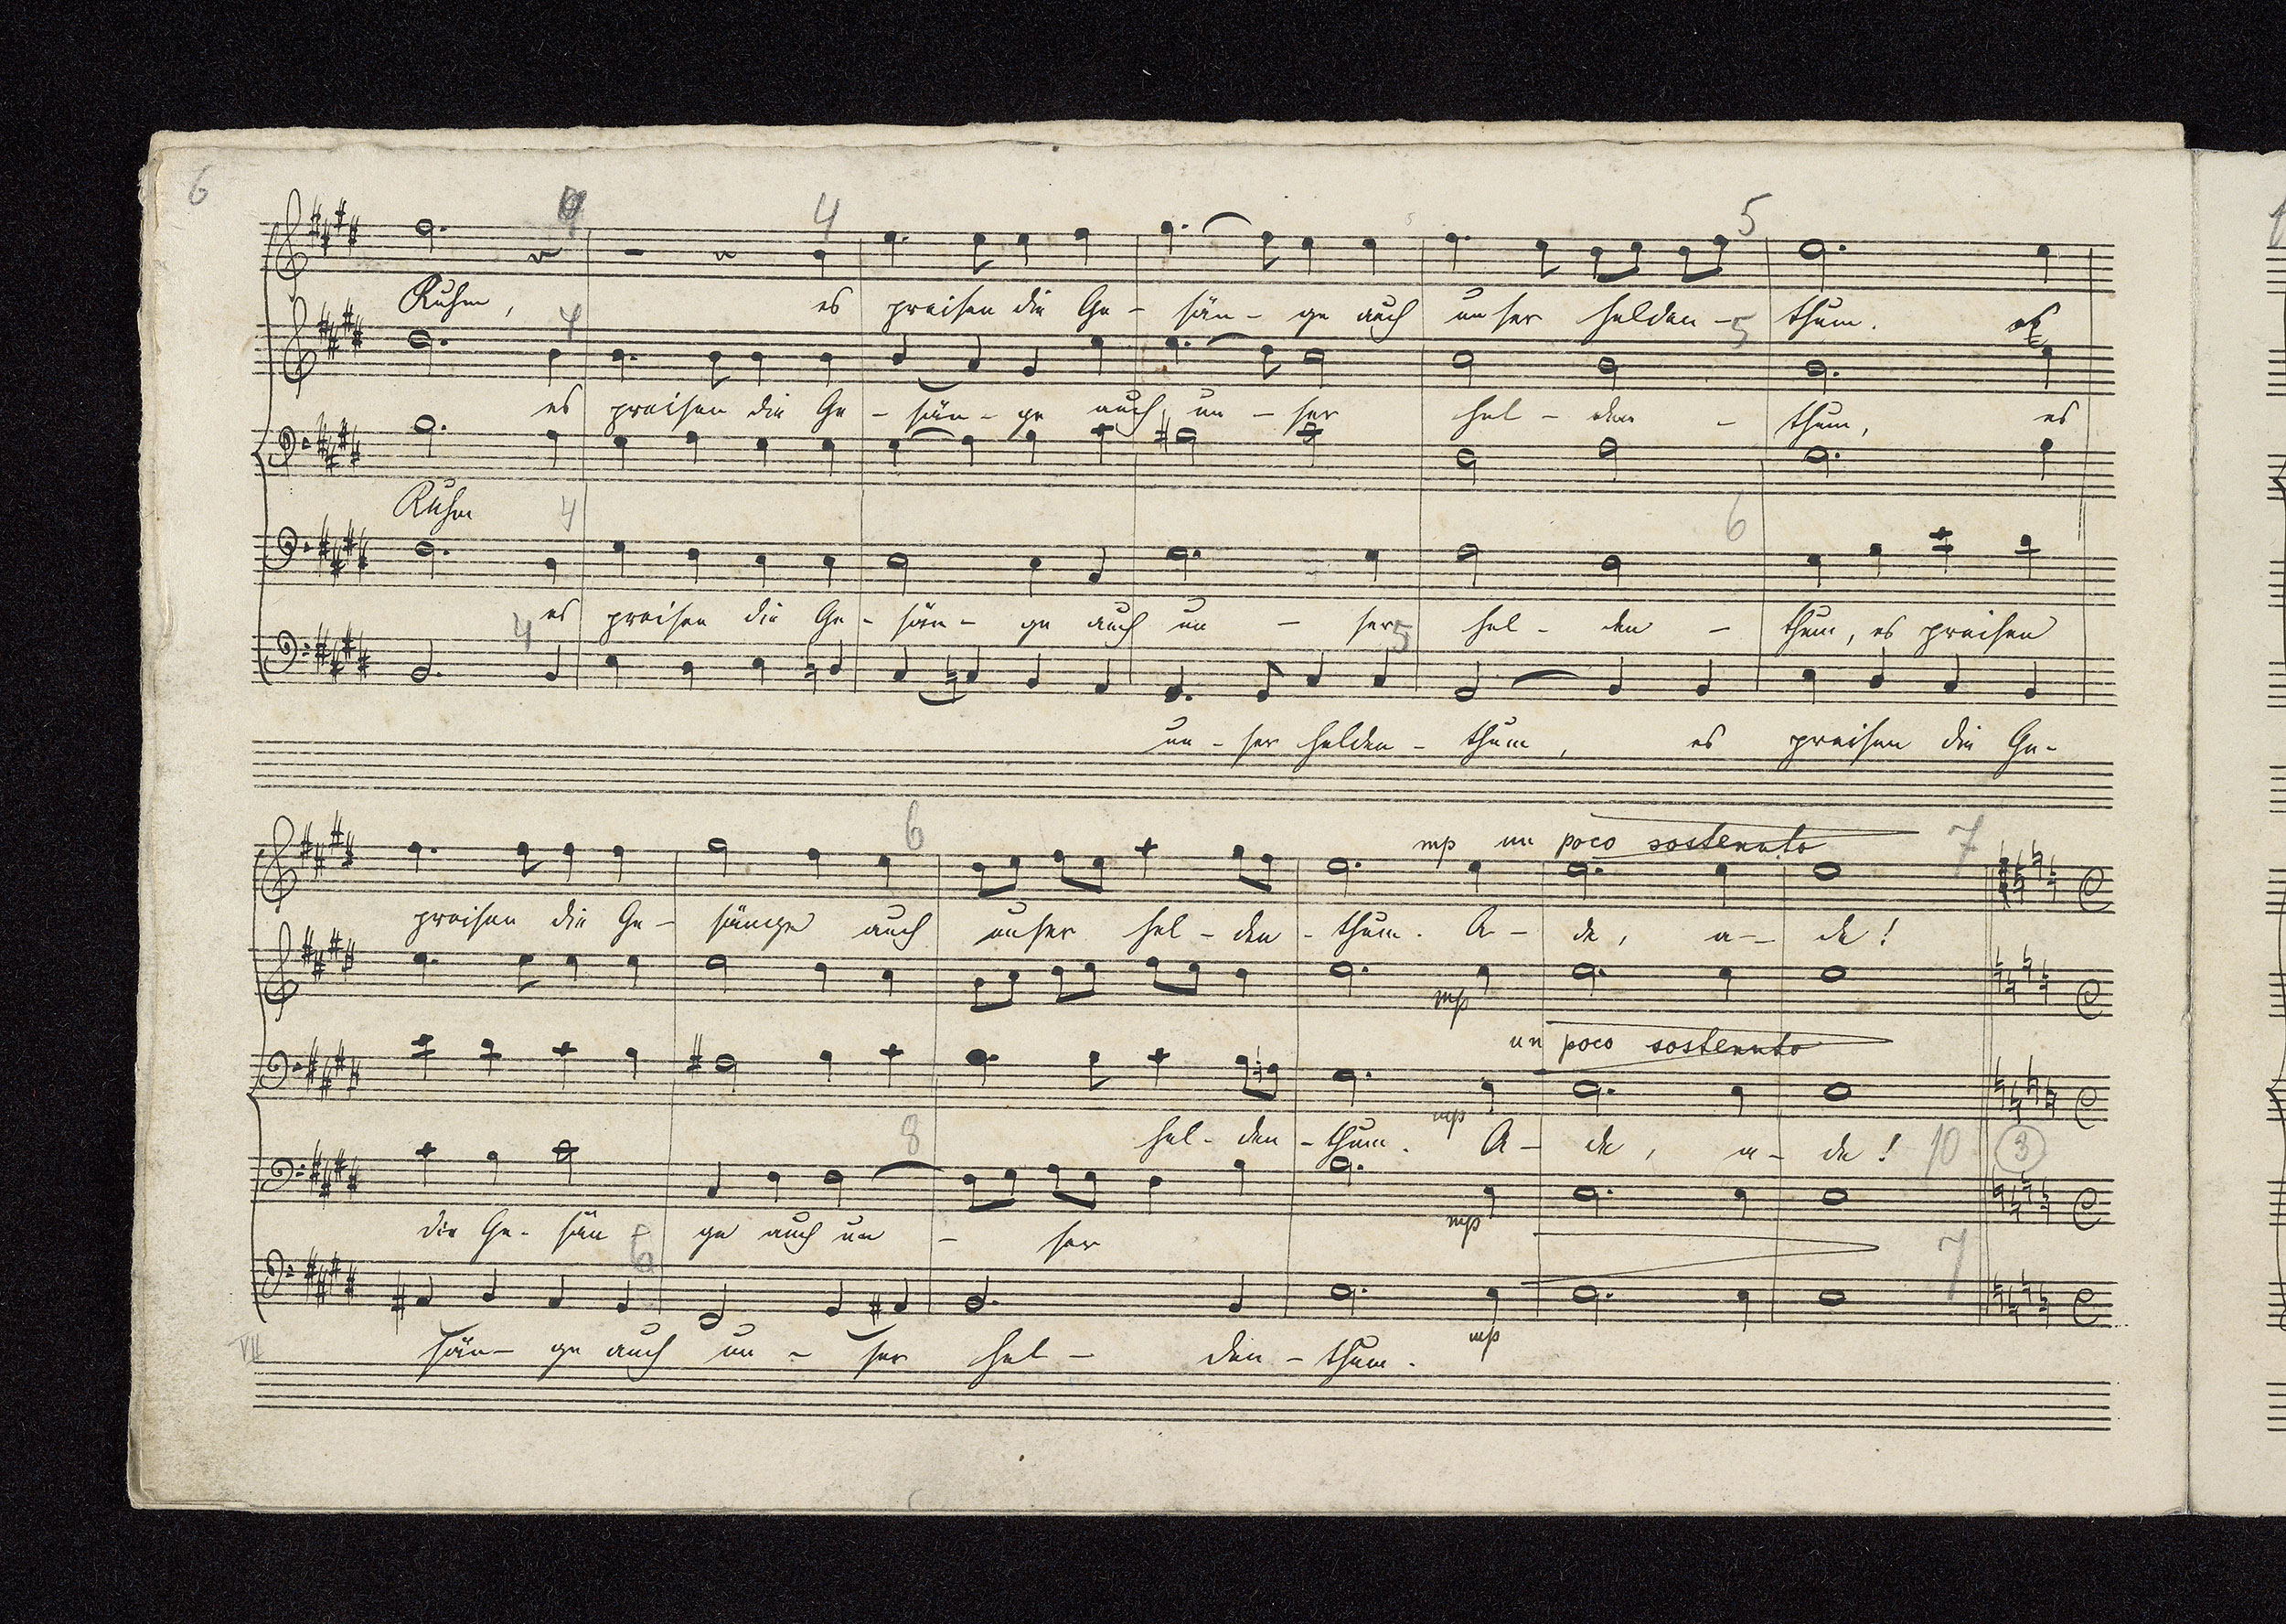 6
4
4
5
Ruhm, es preisen die Ge- sän- ge auch unser Helden- thum. es
4
5
es preisen die Ge- sän- ge auch un- ser Hel- den - thum, es
Ruhm
4
6
es preisen die Ge- sän- ge auch un - ser Hel- den - thum, es preisen
4
5
un- ser Helden- thum, es preisen die Ge-
6
mp un poco sostenuto
7
preisen die Ge- sänge auch unser Hel- den- thum. A- de, a- de!
mp
un poco sostenuto
mp
8
Hel- den- thum. A- de, a- de! 10 3
mp
die Ge- sän - ge auch un - ser
6
7
VII
sän- ge auch un - ser Hel - den- thum.
mp